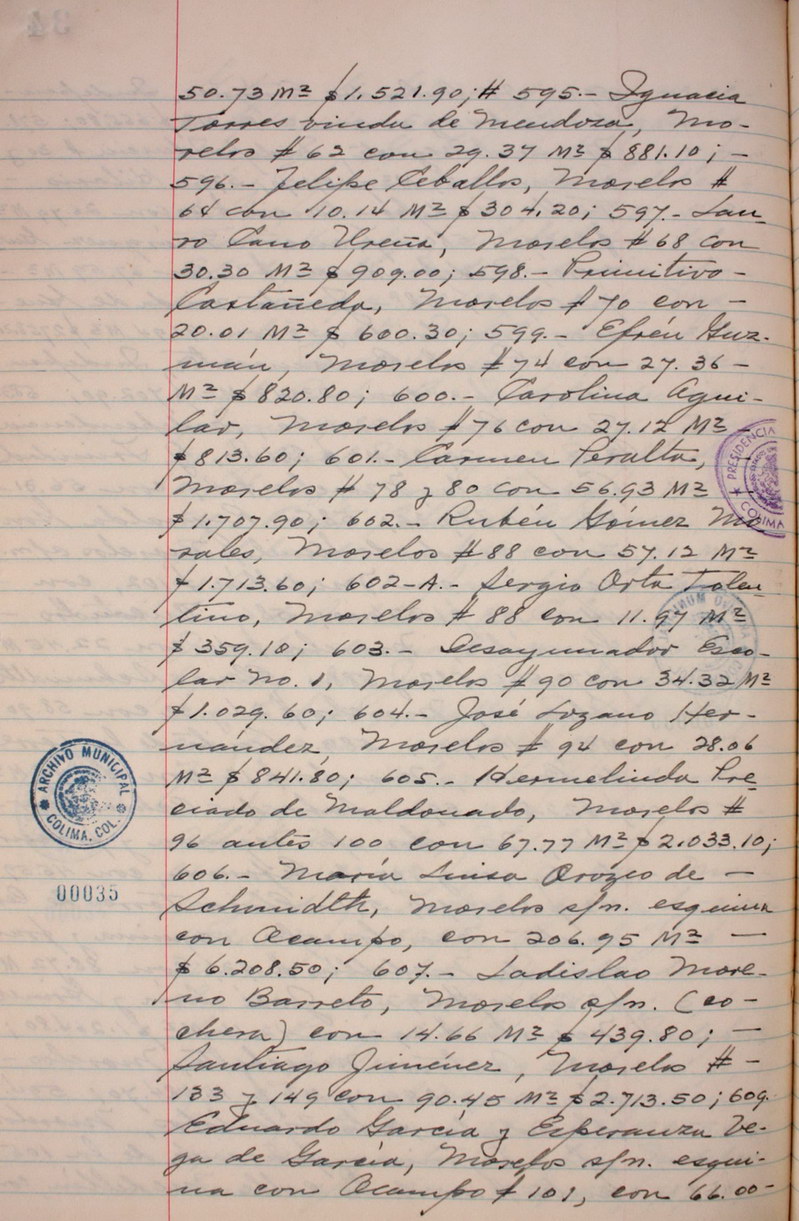 50.73 M² $1.521.90; # 595.- Ignacia
Torres viuda de Mendoza, Mo-
relos # 62 con 29.37 M² $ 881.10; -
596.- Felipe Ceballos, Morelos #
64 con 10.14 M² $ 304.20; 597.- Lau-
ro Cano Ureña, Morelos # 68 con
30.30 M² $ 909.00; 598.- Primitivo -
Castañeda, Morelos # 70 con -
20.01 M² $ 600.30; 599.- Efrén Guz-
mán, Morelos # 74 con 27.36 -
M² $ 820.80; 600.- Carolina Agui-
lar, Morelos # 76 con 27.12 M² -
$ 813.60; 601.- Carmen Peralta,
Morelos # 78 y 80 con 56.93 M²
$ 1.707.90; 602.- Rubén Gómez Mo
rales, Morelos # 88 con 57.12 M²
$ 1.713.60; 602-A.- Sergio Orta Tolen-
tino, Morelos # 88 con 11.97 M²
$ 359.10; 603.- Desayunador Esco-
lar No. 1, Morelos # 90 con 34.32 M²
$ 1.029.60; 604.- José Lozano Her-
nández, Morelos # 94 con 28.06
M² $ 841.80; 605.- Hermelinda Pre-
ciado de Maldonado, Morelos #
96 antes 100 con 67.77 M² $ 2.033.10;
606.- María Luisa Orozco de -
Schmidth, Morelos s/n. esquina
con Ocampo, con 206.95 M² -
$ 6.208.50; 607.- Ladislao More-
no Barreto, Morelos s/n. (co-
chera) con 14.66 M² $ 439.80; -
Santiago Jiménez, Morelos # -
133 y 149 con 90.45 M² $ 2.713.50; 609.
Eduardo García y Esperanza Ve-
ga de García, Morelos s/n. esqui-
na con Ocampo # 101, con 66.00-
PRESIDENCIA
COLIMA
ARCHIVO MUNICIPAL
COLIMA, COL.
00035